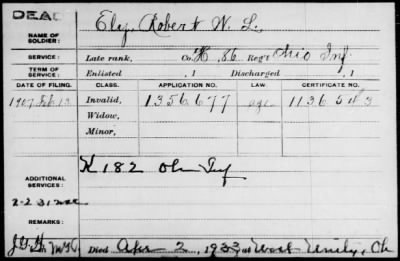 DEAD
NAME OF SOLDIER: Ely, Robert W. L.
SERVICE: Late rank, Co. H, 86 Reg't Ohio Inf
TERM OF SERVICE: Enlisted , 1 Discharged , 1
DATE OF FILING. CLASS. APPLICATION NO. LAW CERTIFICATE NO.
1907 Feb 13 Invalid, 1356677 age 1136543
Widow,
Minor,
ADDITIONAL SERVICES: K 182 Oh Inf
REMARKS:
Died Apr 2, 1933, at West Unity, Oh